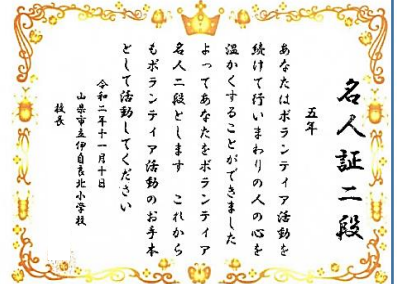 名人証二段
五年
あなたはボランティア活動を
続けて行いまわりの人の心を
温かくすることができました
よってあなたをボランティア
名人二段とします　これから
もボランティア活動のお手本
として活動してください
令和二年十一月十日
山県市立伊自良北小学校
校長